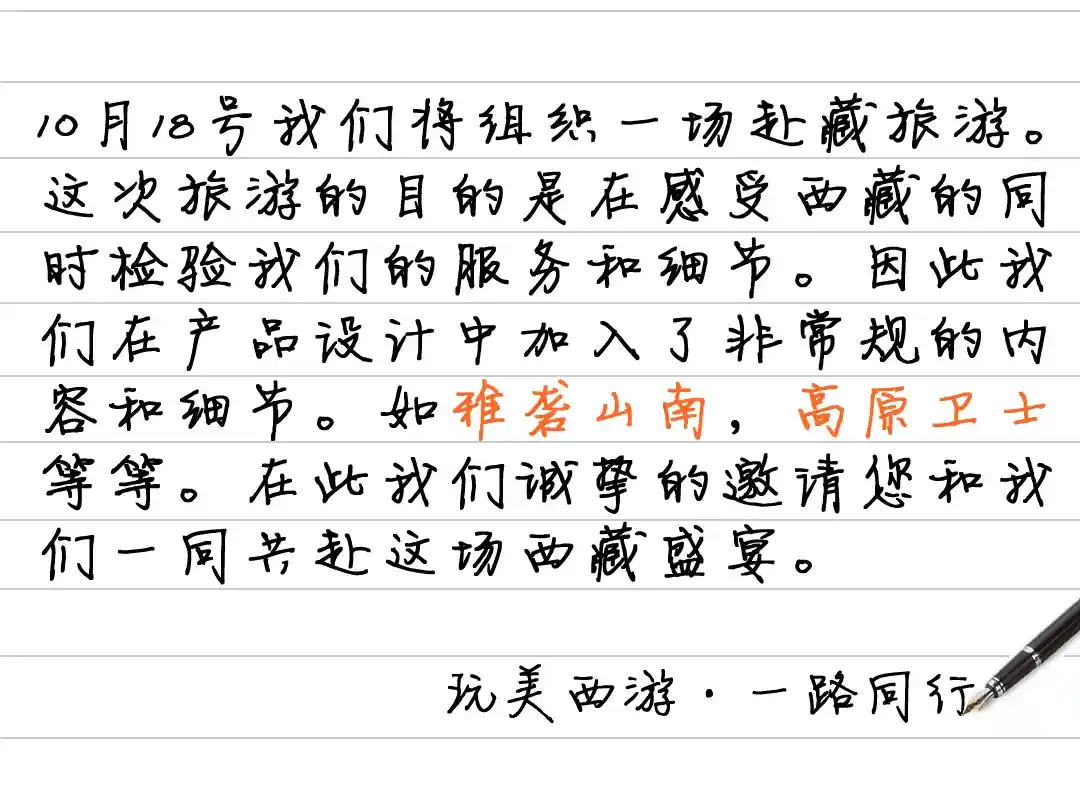 10月18号我们将组织一场赴藏旅游。
这次旅游的目的是在感受西藏的同
时检验我们的服务和细节。因此我
们在产品设计中加入了非常规的内
容和细节。如雅砻山南，高原卫士
等等。在此我们诚挚的邀请您和我
们一同共赴这场西藏盛宴。
玩美西游·一路同行